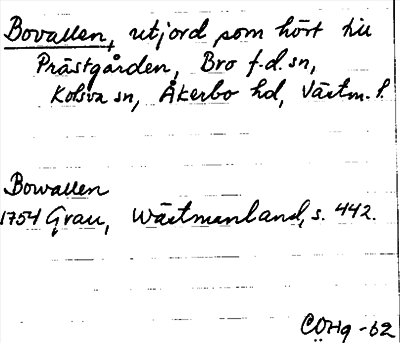 Bovallen, utjord som hört till
Prästgården, Bro f.d. sn,
Kolsva sn, Åkerbo hd, Västm. l.
Bowallen
1754 Grau, Wästmanland, s. 442.
CÖHg -62